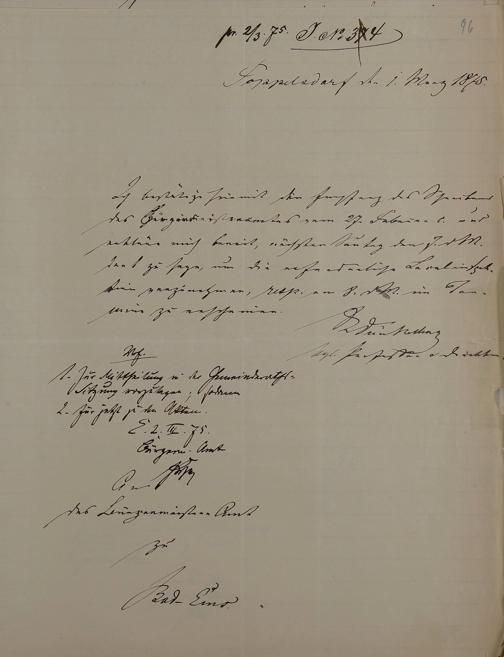 pr. 2/3. 75. J. No 374
96
Poppelsdorf den 1. Maerz 1875.
Ich bestätige hiermit den Empfang des Schreibens
des Bürgermeisteramtes vom 27. Februar c. und
erkläre mich bereit, nächsten Sonntag den 7. d. M.
dort zu sein, um die erforderliche Localinspek-
tion vorzunehmen, resp. am 8. d. M. im Ter-
mine zu erscheinen.
Dünkelberg
kgl. Professor u. Direktor
Vfg.
1. Zur Mittheilung in der Gemeinderaths-
Sitzung vorzulegen; sodann
2. Für jetzt zu den Akten.
E. 2. III. 75.
Bürgerm. Amt
An
das Buergermeister Amt
zu
Bad-Ems.